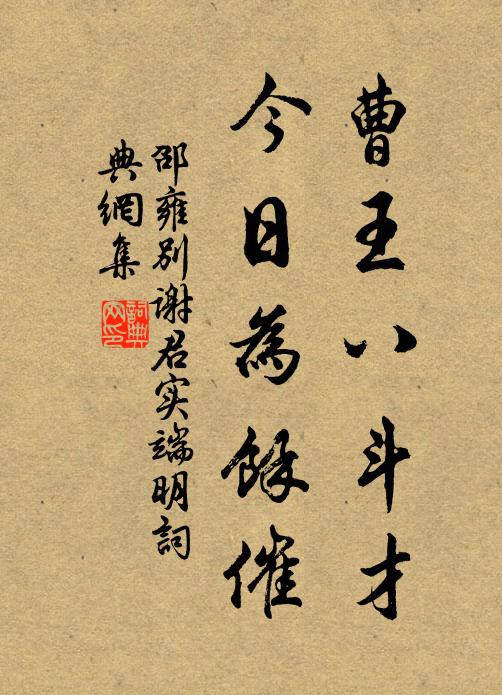 曹王八斗才
今日為餘催
邵雍别謝君实端明詞
典網集
詞典
网印